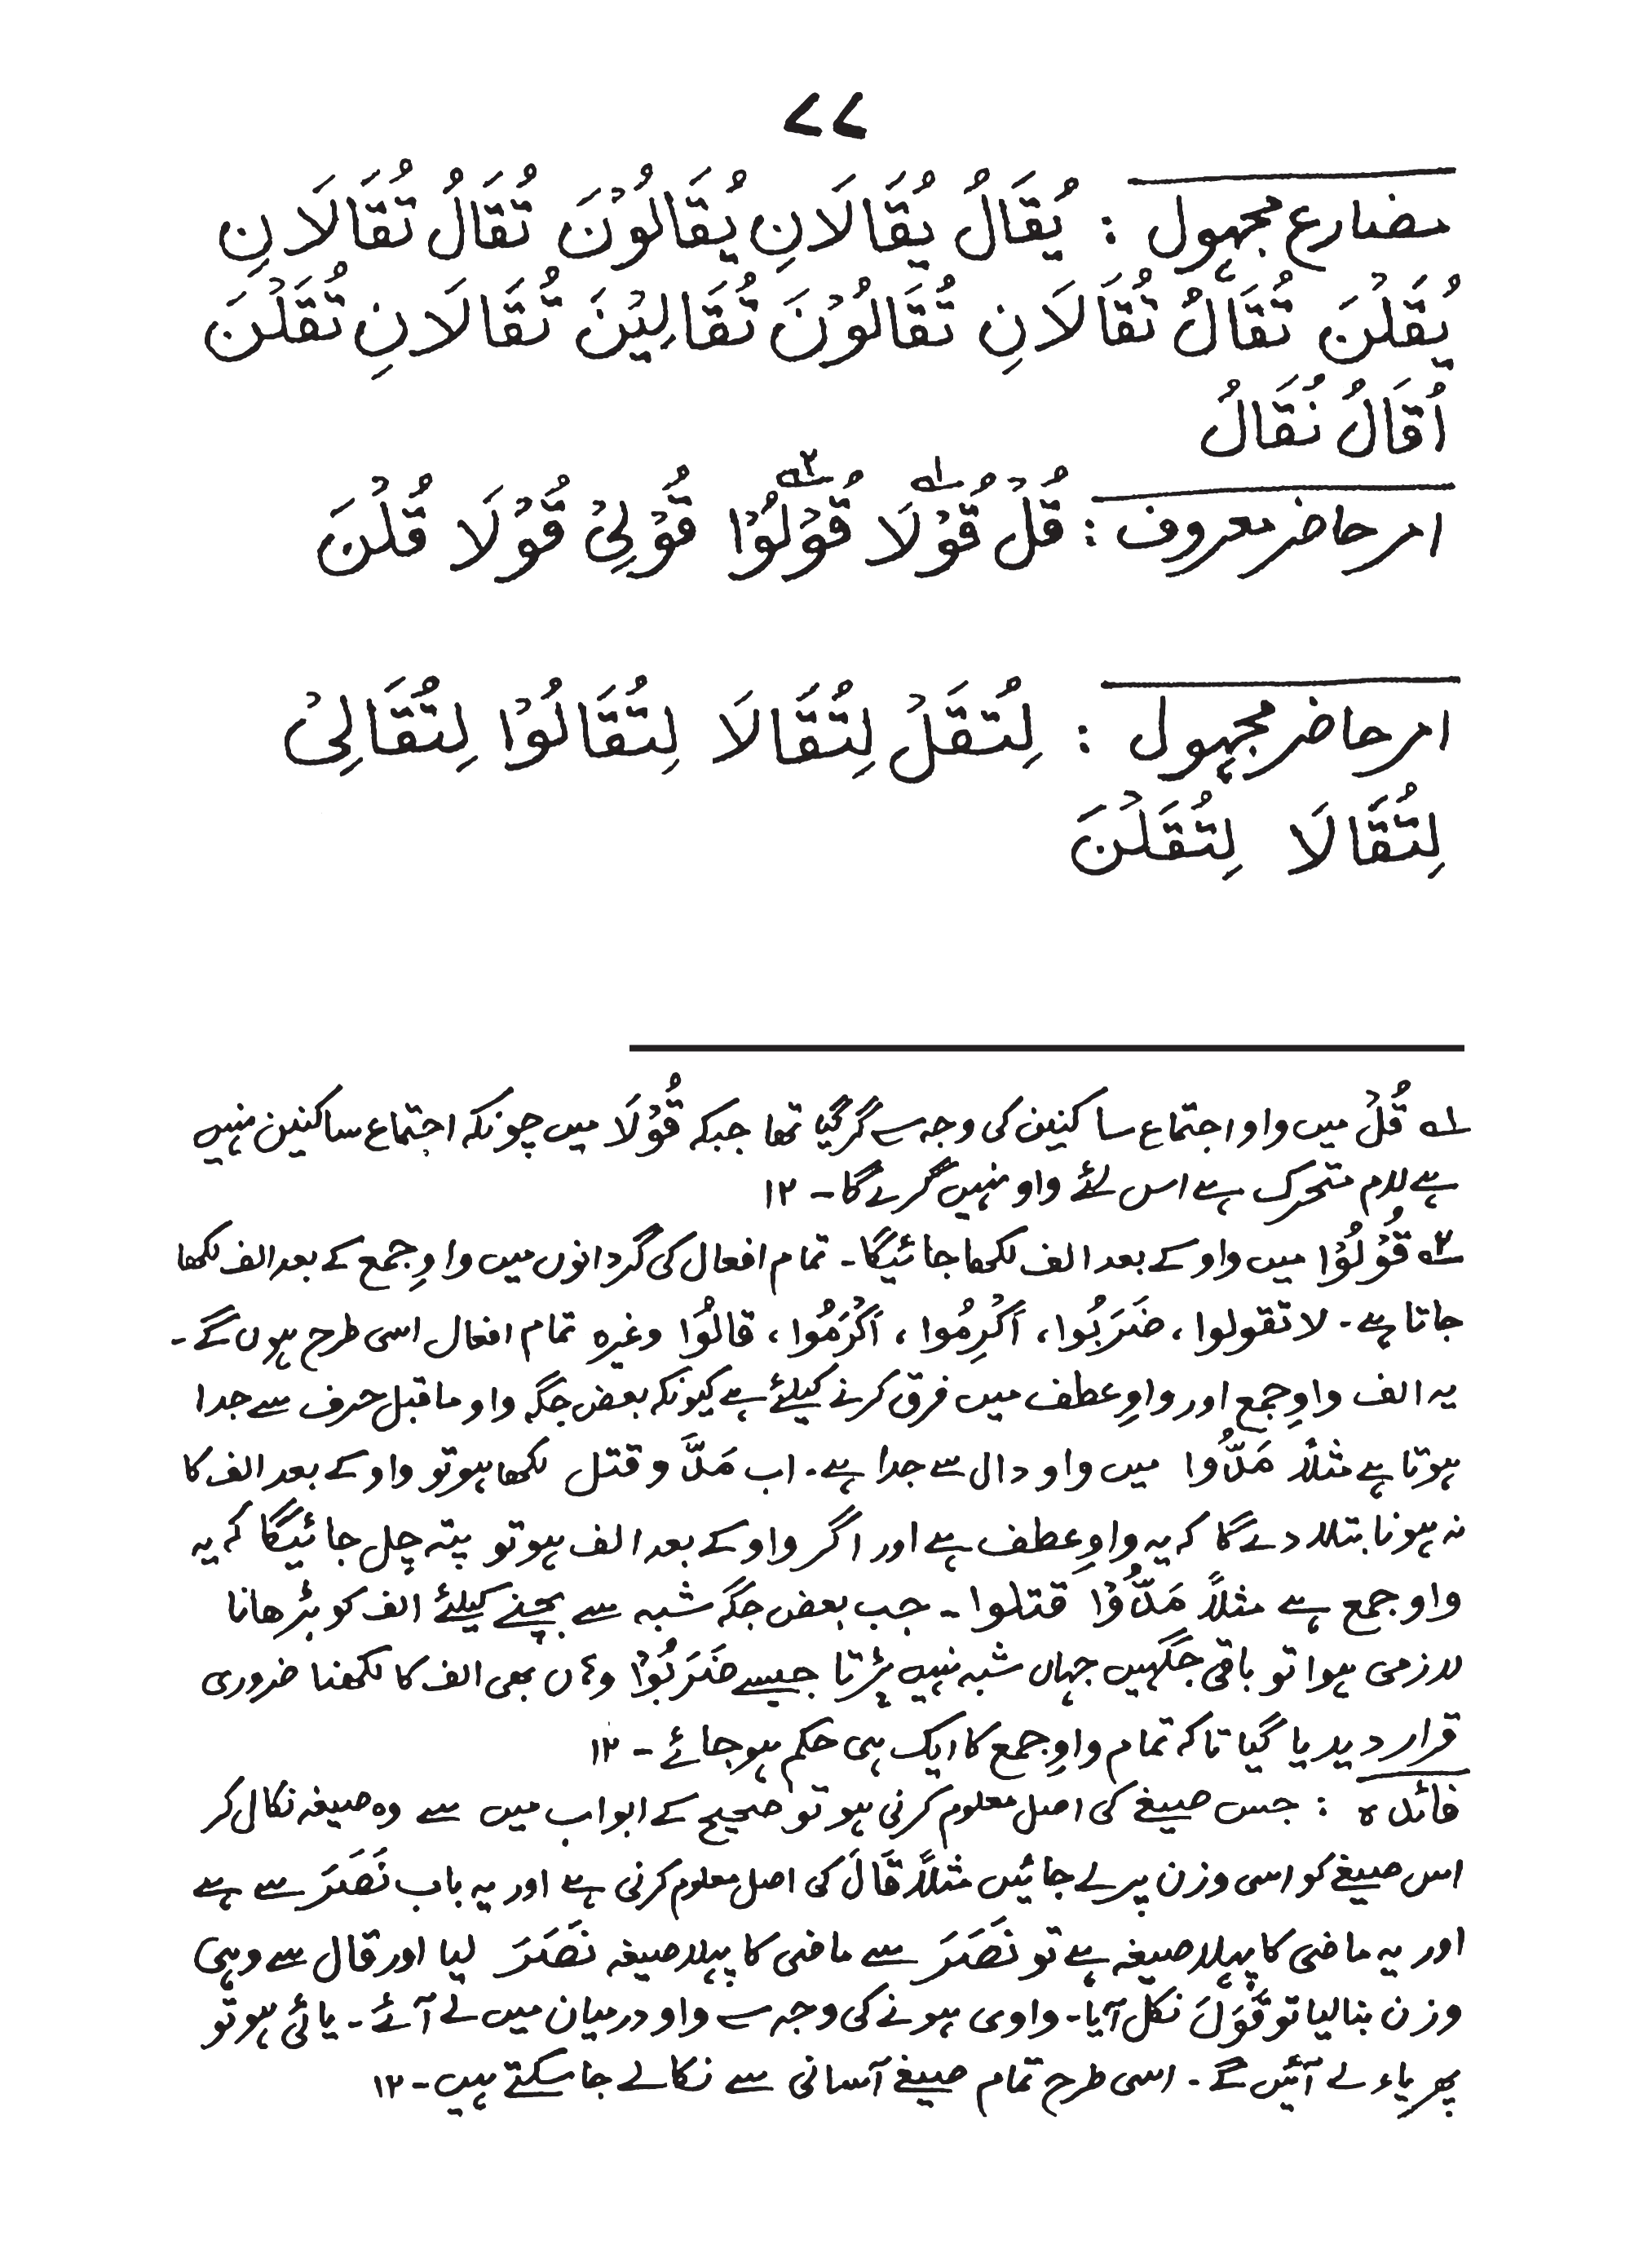 ۷۷
مضارع مجہول : يُقَالُ يُقَالَانِ يُقَالُوْنَ تُقَالُ تُقَالَانِ
يُقَلْنَ تُقَالُ تُقَالَانِ تُقَالُوْنَ تُقَالِيْنَ تُقَالَانِ تُقَلْنَ
اُقَالُ نُقَالُ
امر حاضر معروف : قُلْ قُوْلَا ۱ قُوْلُوْا ۲ قُوْلِىْ قُوْلَا قُلْنَ
امر حاضر مجہول : لِتُقَلْ لِتُقَالَا لِتُقَالُوْا لِتُقَالِىْ
لِتُقَالَا لِتُقَلْنَ
۱ قُلْ میں واو اجتماع ساکنین کی وجہ سے گر گیا تھا جبکہ قُوْلَا میں چونکہ اجتماع ساکنین نہیں
ہے لام متحرک ہے اس لئے واو نہیں گرے گا ۔ ۱۲
۲ قُوْلُوْا میں واو کے بعد الف لکھا جائیگا ۔ تمام افعال کی گردانوں میں واوِ جمع کے بعد الف لکھا
جاتا ہے ۔ لا تقولوا ، ضَرَبُوا ، اَكْرِمُوا ، اَكْرَمُوا ، قالُوا وغیرہ تمام افعال اسی طرح ہوں گے ۔
یہ الف واوِ جمع اور واوِ عطف میں فرق کرنے کیلئے ہے کیونکہ بعض جگہ واو ماقبل حرف سے جدا
ہوتا ہے مثلاً مَدُّوا میں واو دال سے جدا ہے ۔ اب مَدَّ و قتل لکھا ہو تو واو کے بعد الف کا
نہ ہونا بتلا دے گا کہ یہ واوِ عطف ہے اور اگر واو کے بعد الف ہو تو پتہ چل جائیگا کہ یہ
واو جمع ہے مثلاً مَدُّوْا قتلوا ۔ جب بعض جگہ شبہ سے بچنے کیلئے الف کو بڑھانا
لازمی ہوا تو باقی جگہیں جہاں شبہ نہیں پڑتا جیسے ضَرَبُوْا وہاں بھی الف کا لکھنا ضروری
قرار دیدیا گیا تاکہ تمام واوِ جمع کا ایک ہی حکم ہو جائے ۔ ۱۲
فائدہ : جس صیغے کی اصل معلوم کرنی ہو تو صحیح کے ابواب میں سے وہ صیغہ نکال کر
اس صیغے کو اسی وزن پر لے جائیں مثلاً قَالَ کی اصل معلوم کرنی ہے اور یہ باب نَصَرَ سے ہے
اور یہ ماضی کا پہلا صیغہ ہے تو نَصَرَ سے ماضی کا پہلا صیغہ نَصَرَ لیا اور قال سے وہی
وزن بنالیا تو قَوَلَ نکل آیا ۔ واوی ہونے کی وجہ سے واو درمیان میں لے آئے ۔ یائی ہو تو
پھر یاء لے آئیں گے ۔ اسی طرح تمام صیغے آسانی سے نکالے جاسکتے ہیں ۔ ۱۲